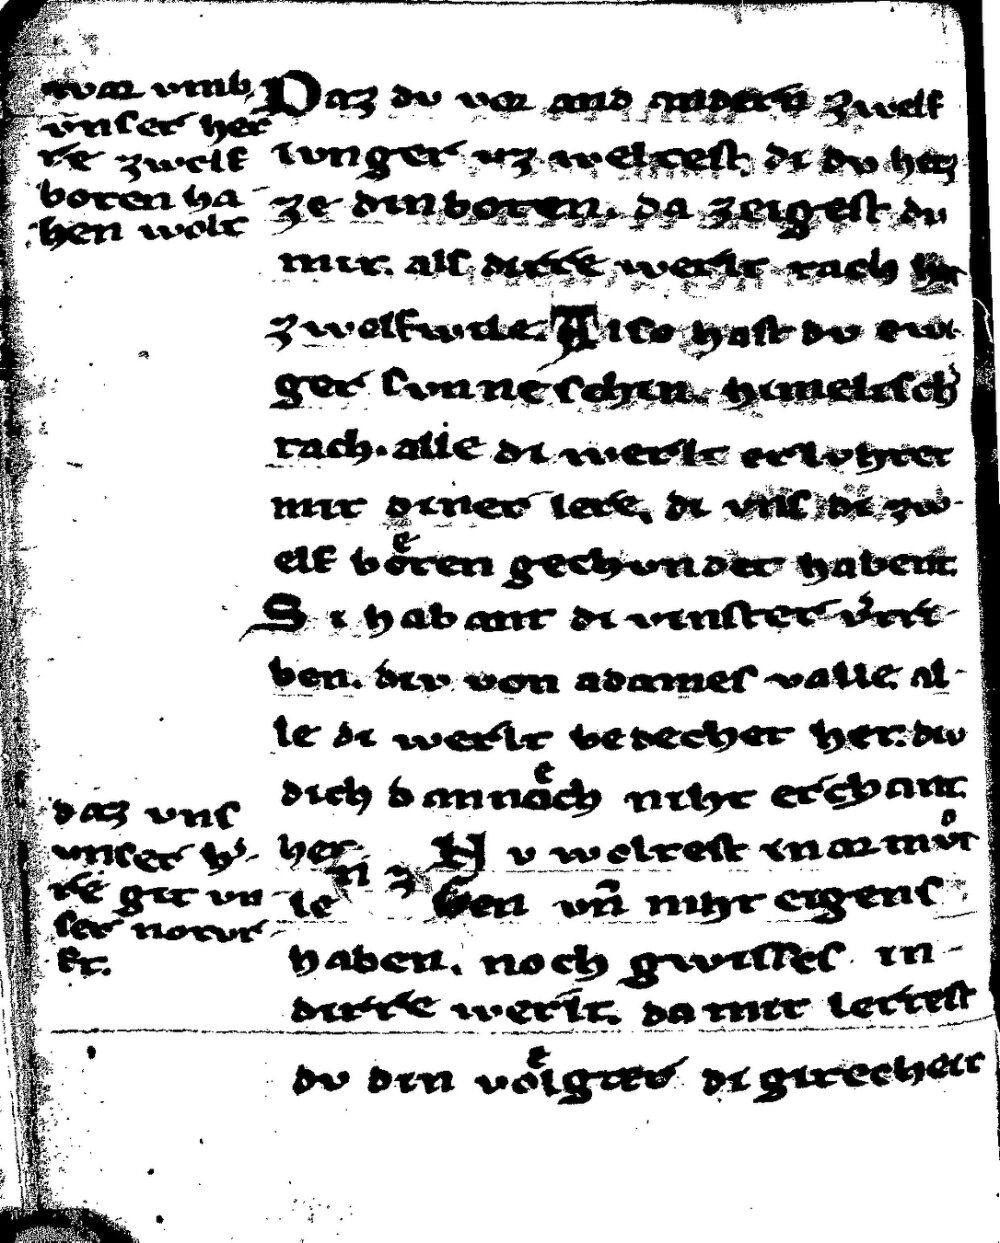 war vmb
vnser her
re zwelf
boten ha
ben wolt
Daz dv vor and andern zwelf
ivnger vz weltest. di dv hetz
ze dinboten. da zeigest dv
mir. alſ dirre werlt tach hat
zwelfwile. Alſo hast dv ewi
ger ſvnneschin. himeliſch
tach. alle di werlt erlvhtet
mit diner lere. di vnſ di zw-
elf boͤten gechvndet habent.
Si habant di vinſter v̓tri-
ben. div von adameſ valle al-
le di werlt bedechet het. div
dich dannoͤch niht erchant
het. Nv woltest in armv̊t
le n z ben vn̄ niht eigenſ
haben. noch gwiſſeſ in-
dirre werlt. da mit lertest
dv din voͤlgter di girecheit
daz vnſ
vnſer h̓-
re git vn
ſer notvr
ft.